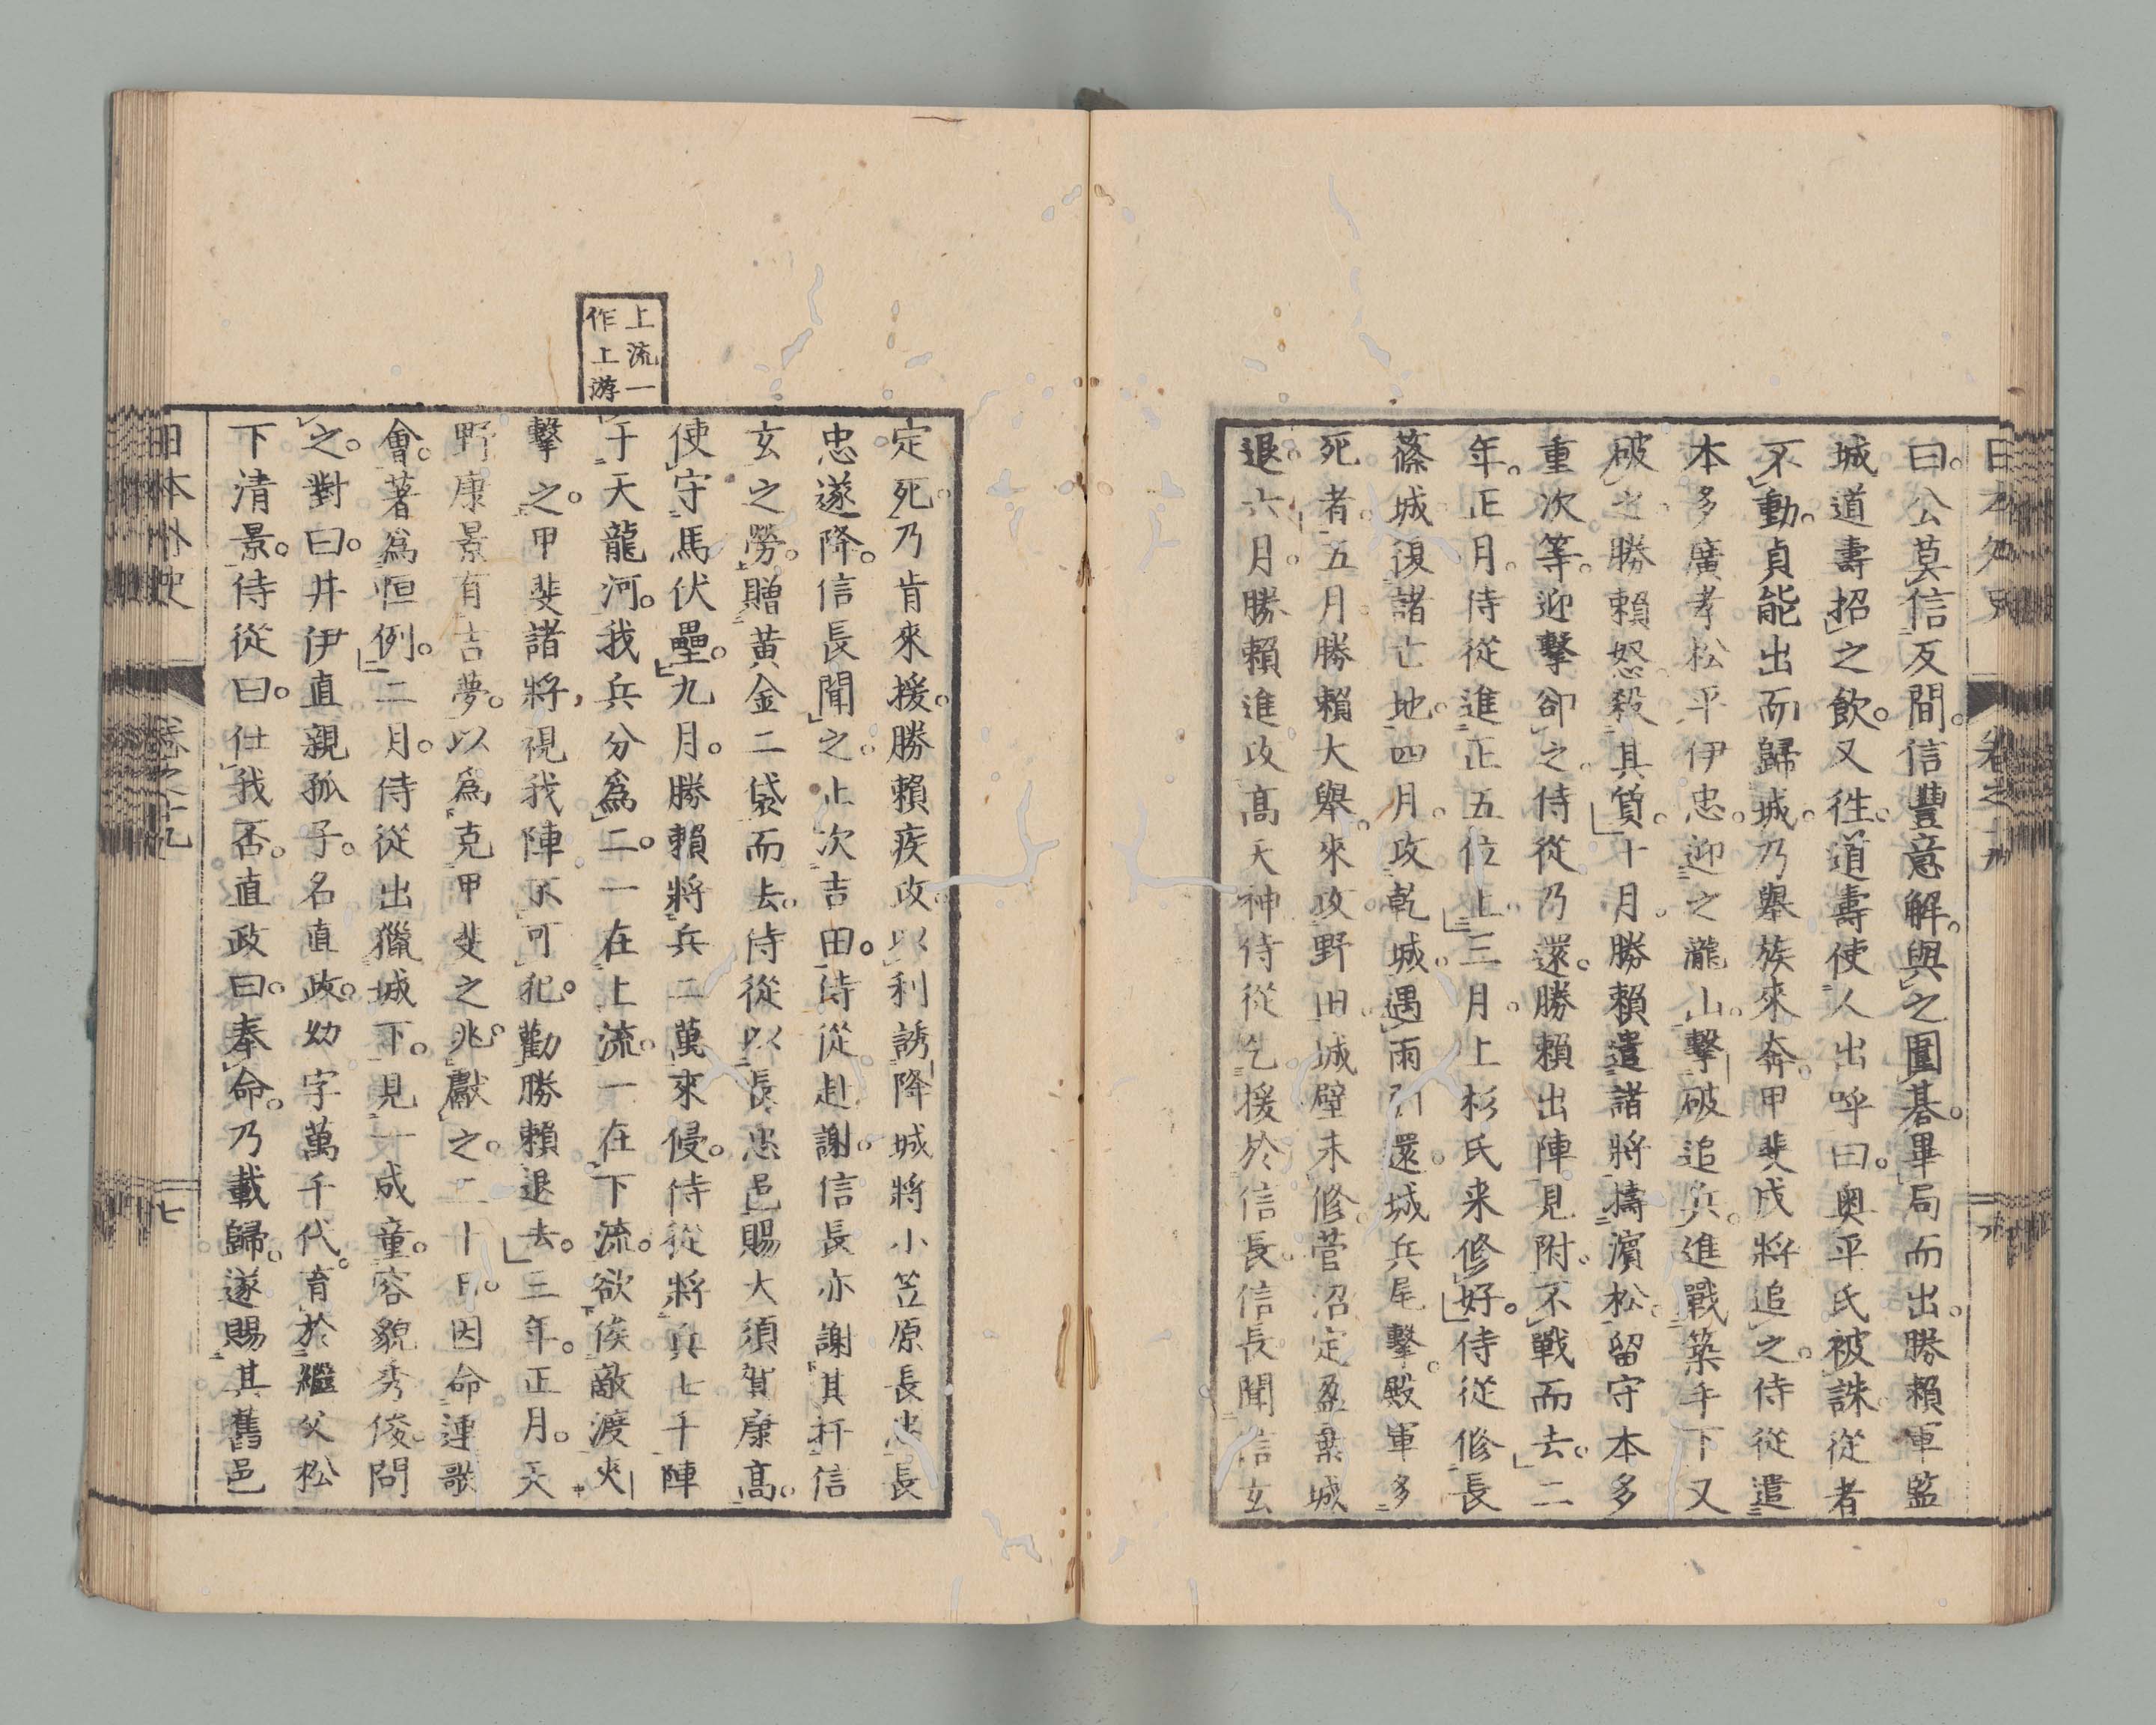 曰。公莫信反間。信豐意解。與之圍碁。畢局而出。勝賴軍監
城道壽招之飲。又徃。道壽使人出呼曰。奥平氏被誅。從者
不動。貞能出而歸城。乃舉族來奔。甲斐戍將追之。侍從遣
本多廣孝松平伊忠。迎之瀧山。擊破追兵。進戰築手下。又
破之。勝賴怒。殺其質。十月。勝賴遣諸將擣濱松。留守本多
重次等。迎擊卻之。侍從乃還。勝賴出陣見附。不戰而去。二
年。正月。侍從進正五位上。三月。上杉氏来修好。侍從修長
篠城。復諸亡地。四月。攻乾城。遇雨引還。城兵尾擊。殿軍多
死者。五月。勝賴大舉。來攻野田。城壁未修。菅沼定盈棄城
退。六月。勝賴進攻高天神。侍從乞援於信長。信長聞信玄
日本外史
卷之十九
定死。乃肯來援。勝賴疾攻。以利誘降城將小笠原長忠。長
忠遂降。信長聞之。止次吉田。侍從赴謝。信長亦謝其扞信
玄之勞。贈黃金二袋而去。侍從以長忠邑賜大須賀康高。
使守馬伏壘。九月。勝賴將兵二萬來侵。侍從將兵七千陣
于天龍河。我兵分爲二。一在上流。一在下流。欲俟敵渡夾
擊之。甲斐諸將視我陣不可犯。勸勝賴退去。三年。正月。天
野康景有吉夢。以爲克甲斐之兆。獻之。二十日。因命連歌
會。著爲恒例。二月。侍從出獵城下。見一成童。容貌秀俊。問
之。對曰。井伊直親孤子。名直政。幼字萬千代。育於繼父松
下清景。侍從曰。仕我否。直政曰。奉命。乃載歸。遂賜其舊邑
上流一
作上游
日本外史
卷之十九
七